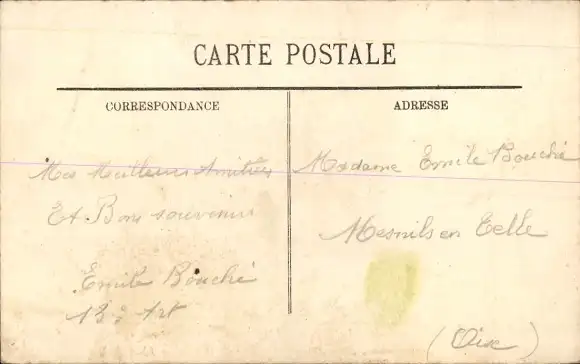 CARTE POSTALE
CORRESPONDANCE
ADRESSE
Mes Meilleures Amitiées
Et Bons souvenirs
Emile Bouché
13e Art
Madame Emile Bouché
Mesnils en Telle
(Oise)